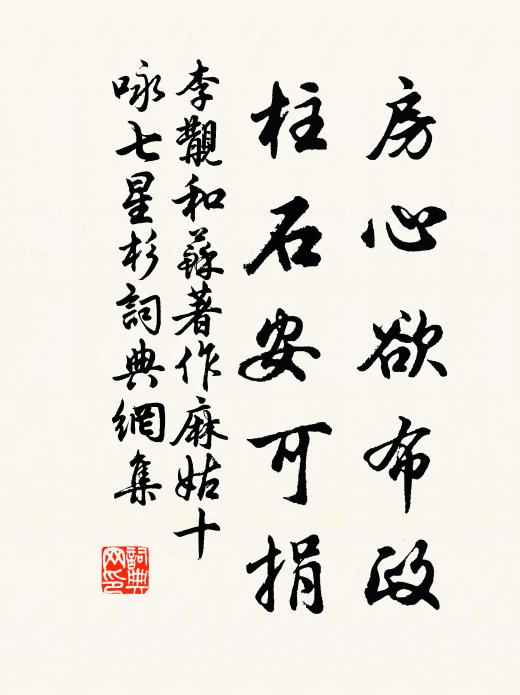 房心欲布政
柱石安可捐
李覯和蘇著作麻姑十
咏七星杉詞典網集
詞典网印